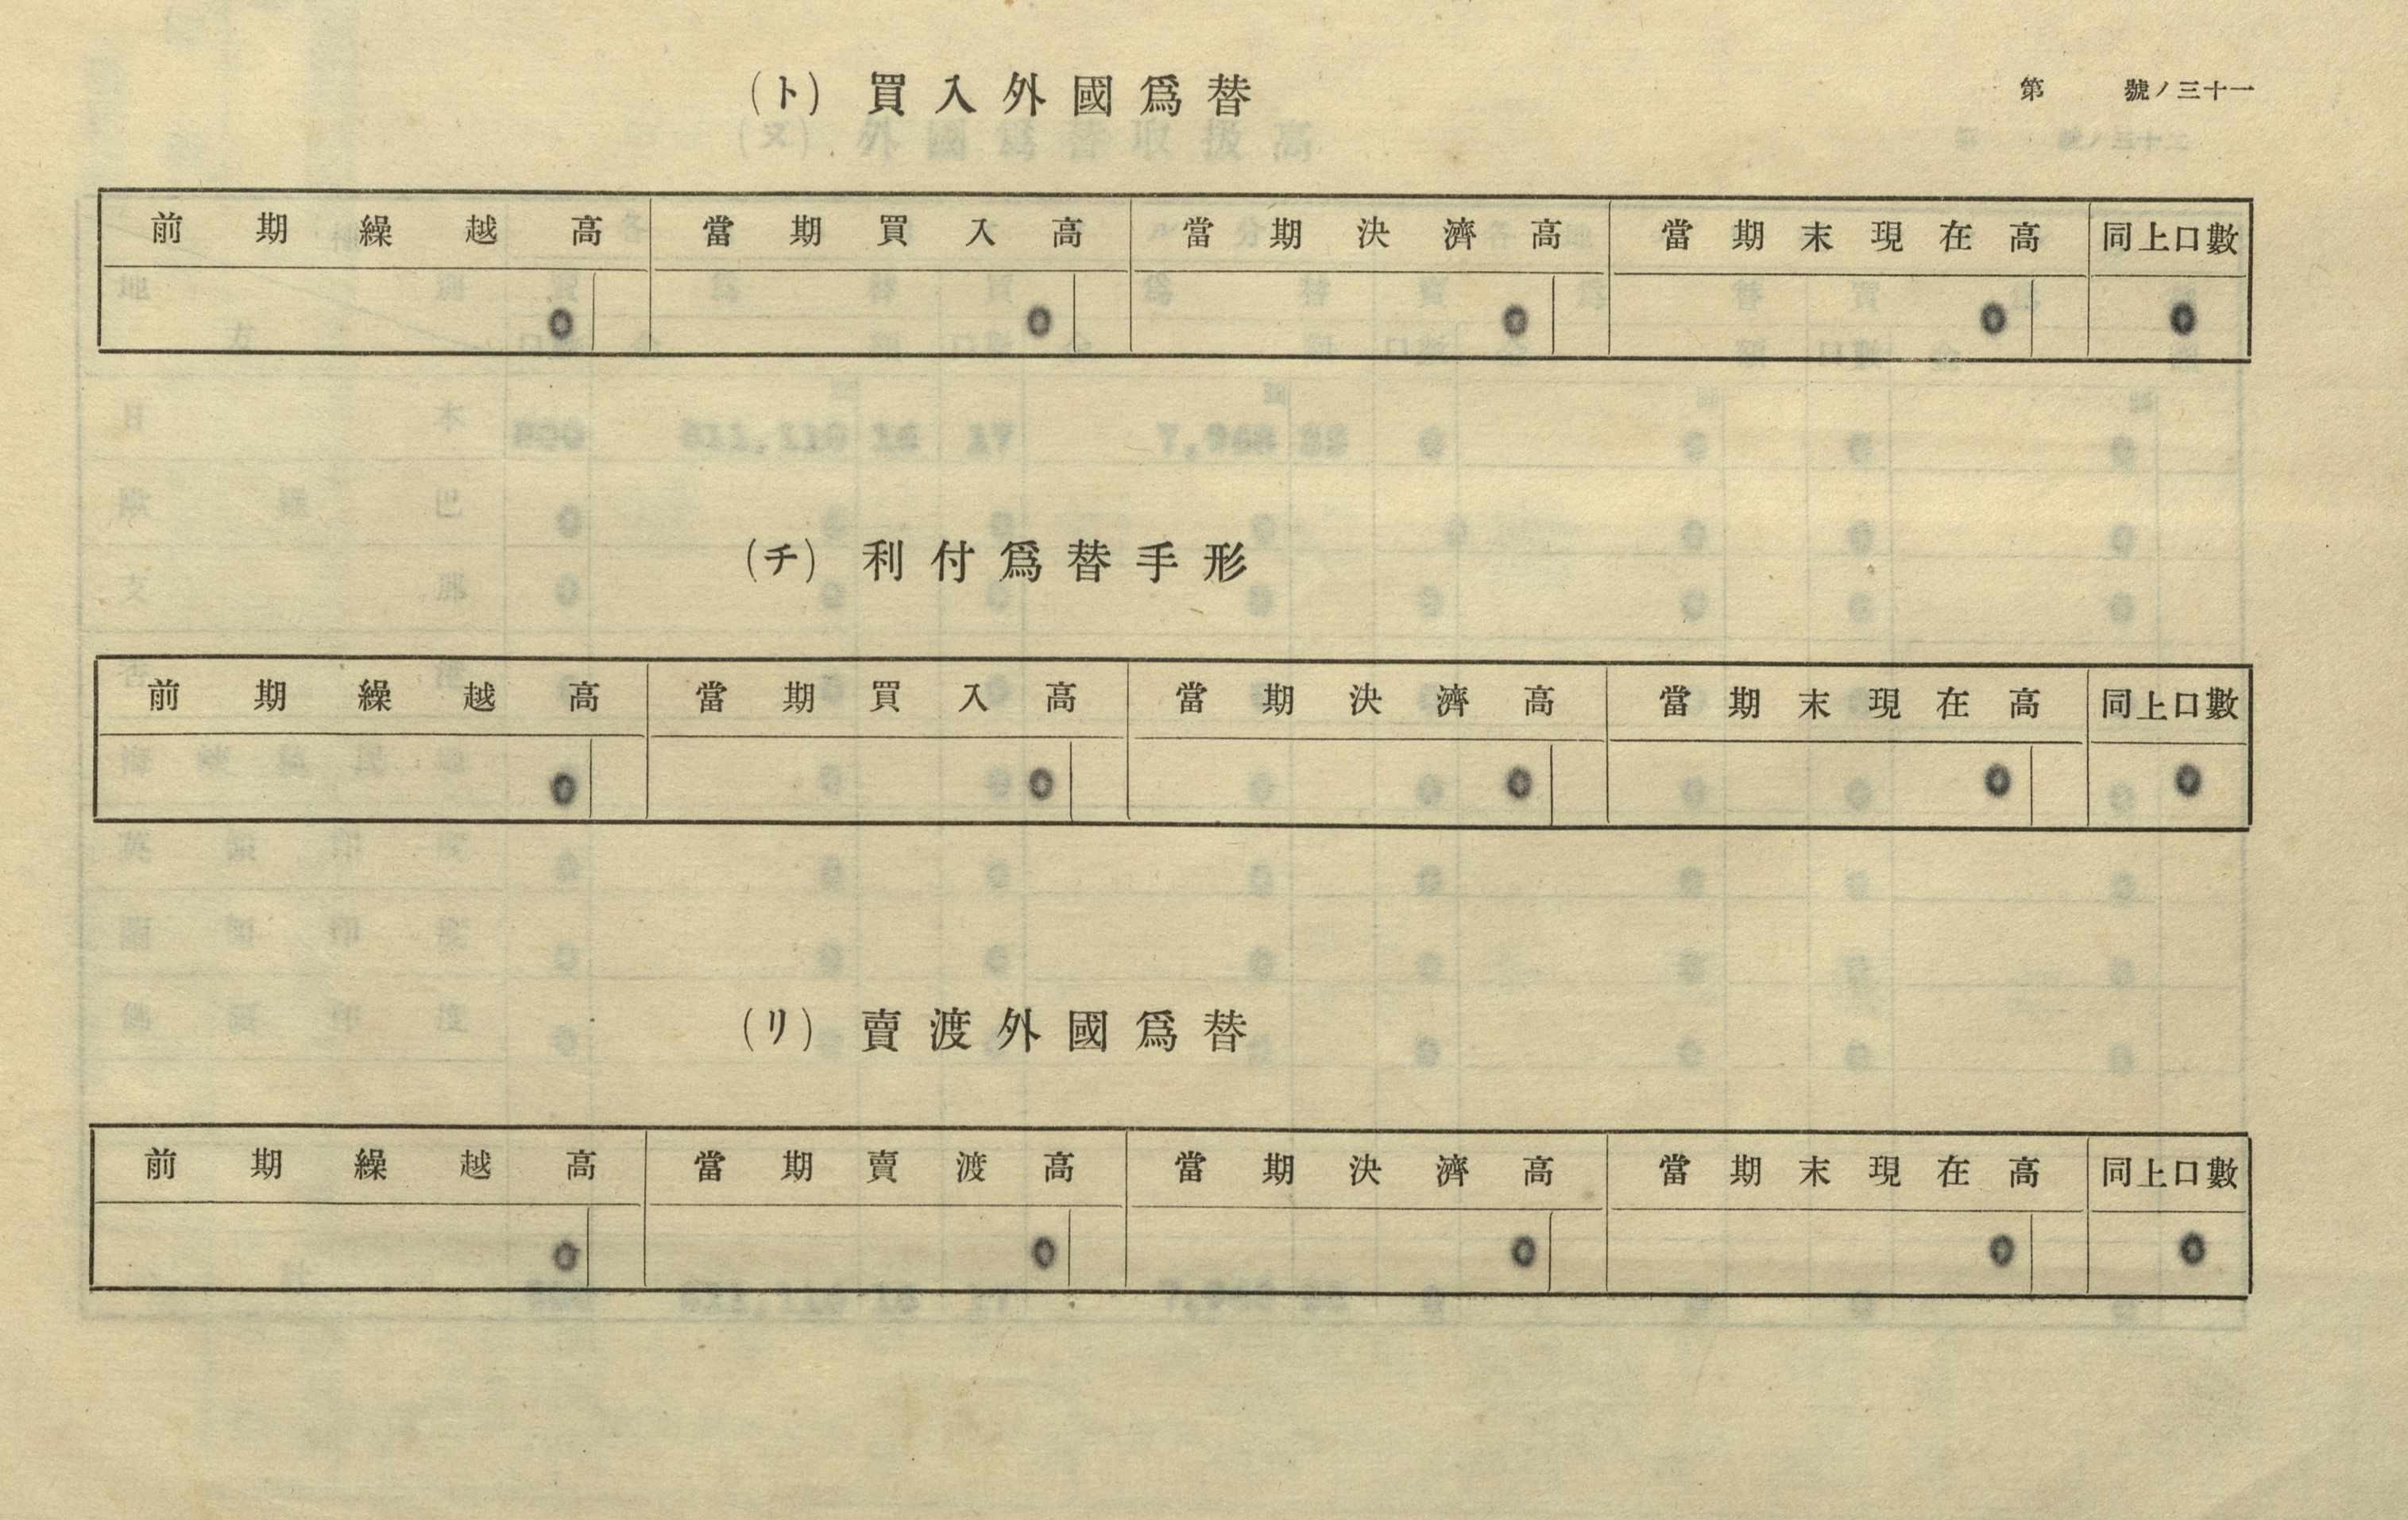 第 號ノ三十一
(ト) 買入外國爲替
前期繰越高 當期買入高 當期決濟高 當期末現在高 同上口數
0 0 0 0 0
(チ) 利付爲替手形
前期繰越高 當期買入高 當期決濟高 當期末現在高 同上口數
0 0 0 0 0
(リ) 賣渡外國爲替
前期繰越高 當期賣渡高 當期決濟高 當期末現在高 同上口數
0 0 0 0 0